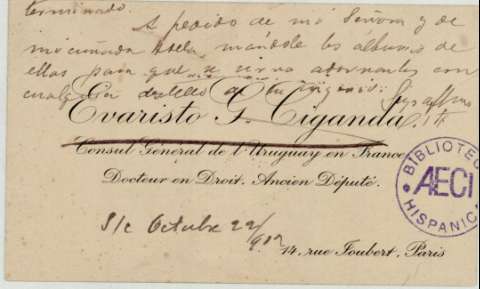 terminado.
A pedido de mi Señora y de
mi cuñada Adela, mándole los álbums de
ellas para que se sirva adornarlos con
cualquier destello de su ingenio.
Evaristo G. Ciganda.
Consul Général de l'Uruguay en France
Docteur en Droit. Ancien Député.
S/c Octubre 22/912
14, rue Joubert, Paris
BIBLIOTEC
AECI
HISPANIC